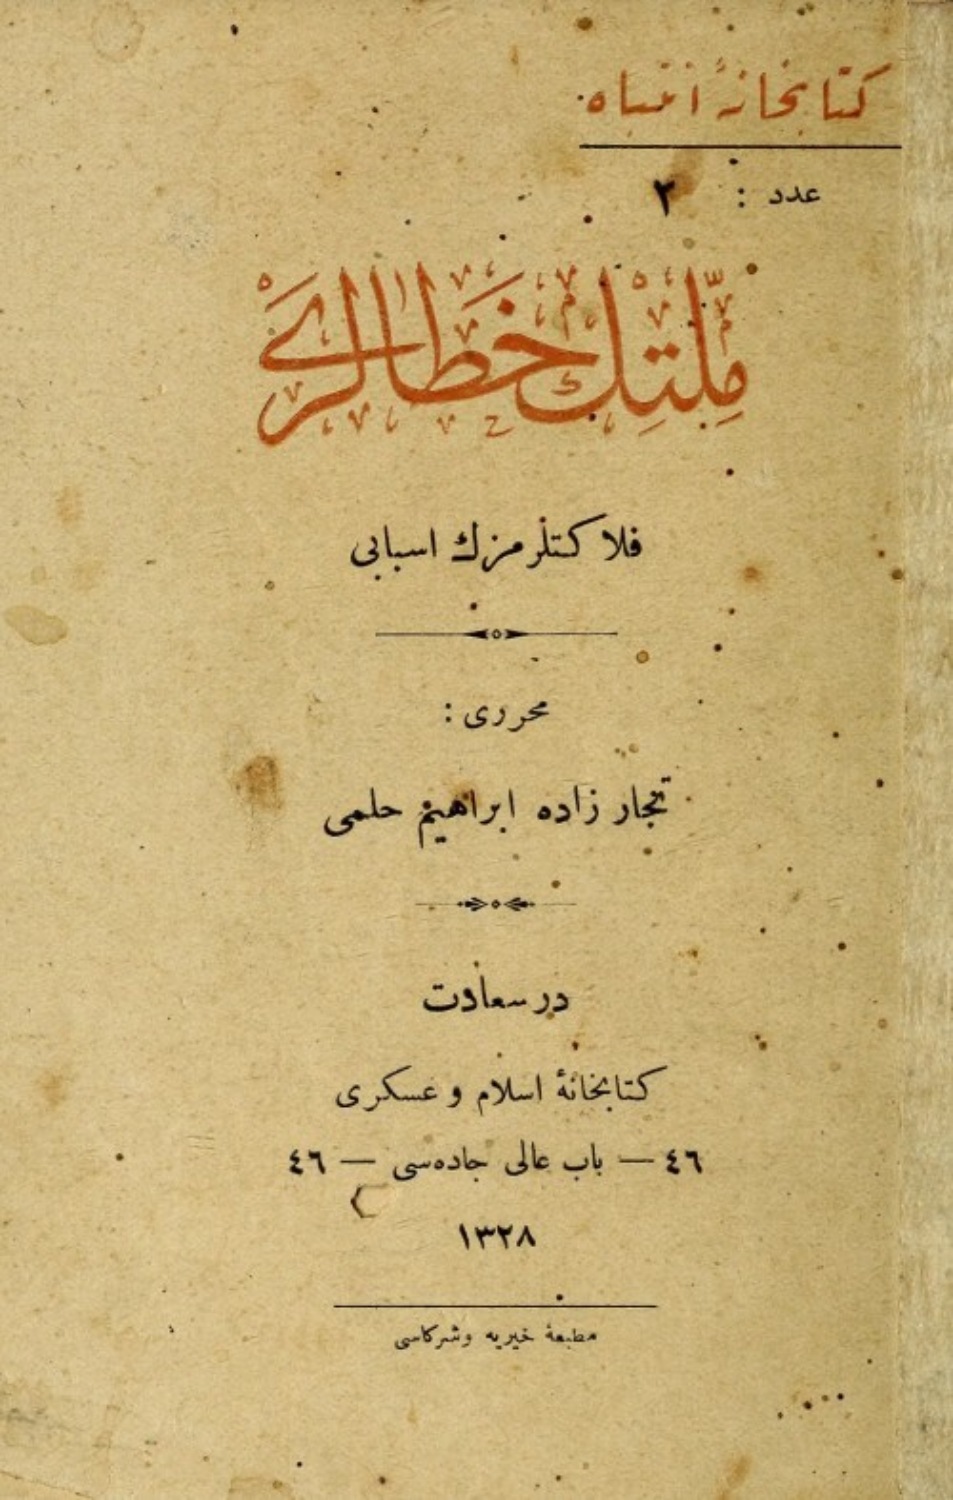 كتابخانۀ انتباه
عدد : ۲
ملتك خطالری
فلاكتلرمزك اسبابی
محرری :
تجار زاده ابراهيم حلمی
در سعادت
كتابخانۀ اسلام و عسكری
٤٦ — باب عالی جاده‌سی — ٤٦
١٣٢٨
مطبعۀ خيريه وشركاسی